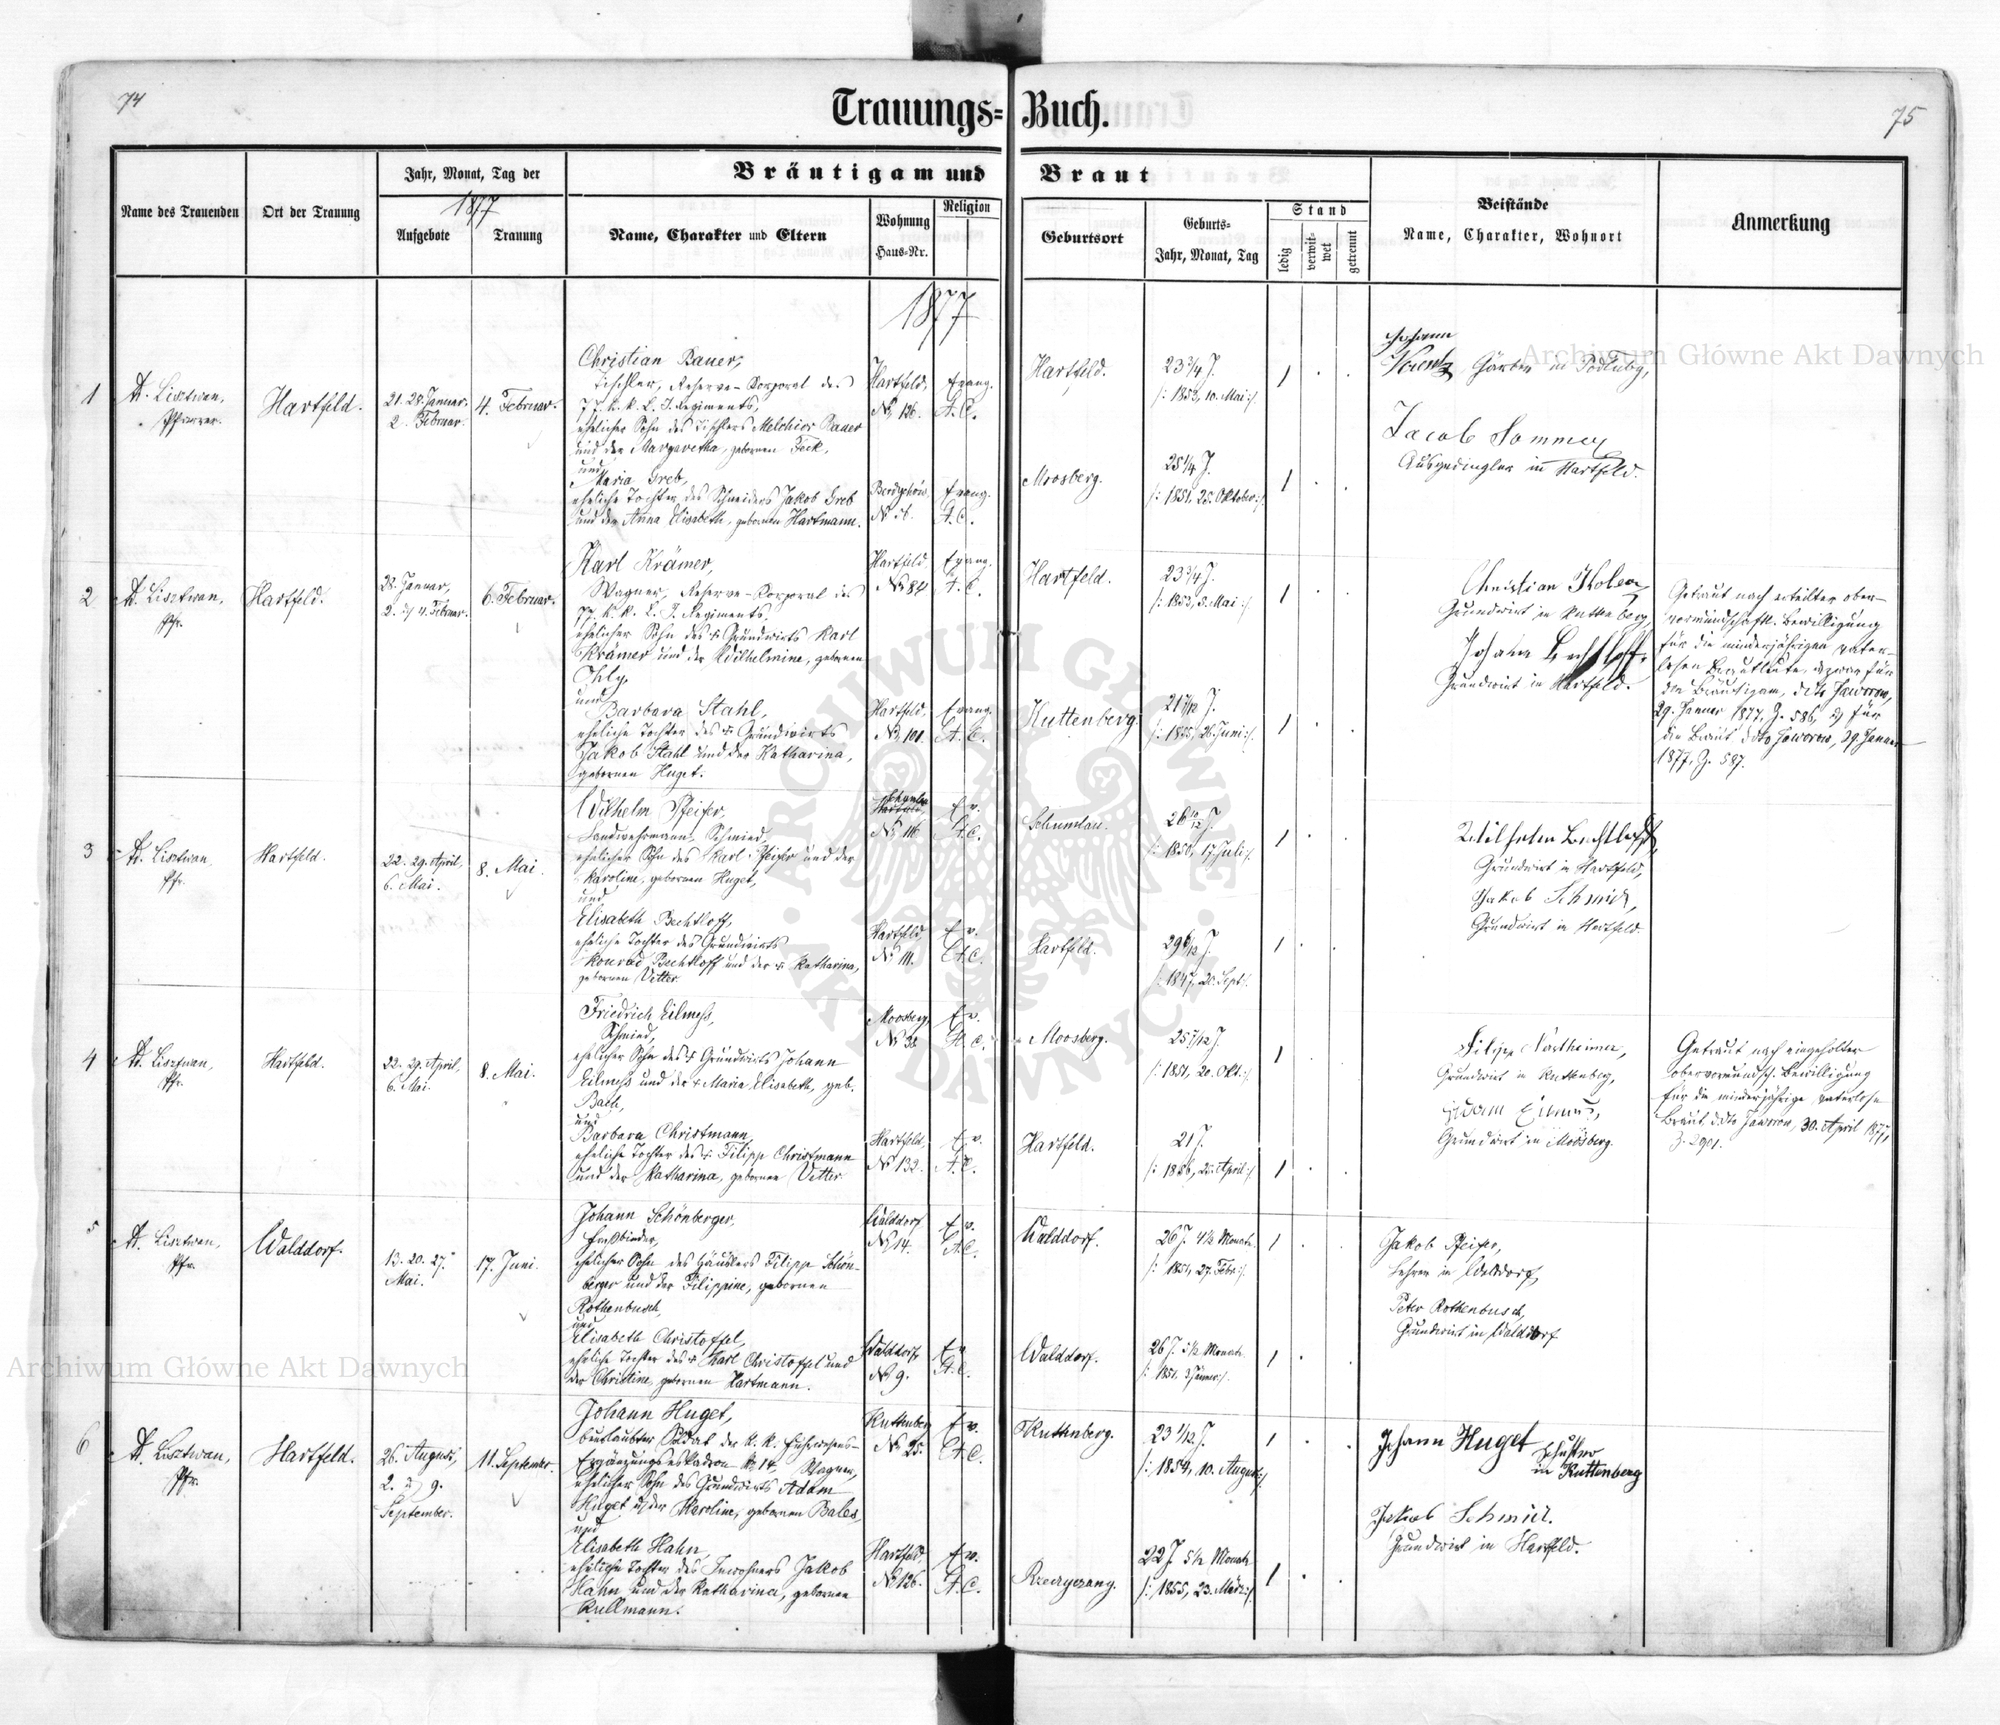 74
Trauungs=Buch.
75
Name des Trauenden
Ort der Trauung
Jahr, Monat, Tag der
1877
Aufgebote
Trauung
Bräutigam und Braut
Name, Charakter und Eltern
Wohnung
Haus=Nr.
Religion
Geburtsort
Geburts=
Jahr, Monat, Tag
Stand
ledig
verwit=
wet
getrennt
Beistände
Name, Charakter, Wohnort
Anmerkung
1877
1
A. Lisztwan,
Pfarrer.
Hartfeld.
21. 28. Januar.
2. Februar.
4. Februar.
Christian Bauer,
Tischler, Reserve-Korporal des
77. k. k. L. I. Regiments,
ehelicher Sohn des Tischlers Melchior Bauer
und der Margaretha, gebornen Feck,
und
Maria Greb,
eheliche Tochter des Schneiders Jakob Greb
und der Anna Elisabeth, gebornen Hartmann.
Hartfeld,
№ 126.
Evang.
A. C.
№
Evang.
A. C.
Hartfeld.
23 3/4 J.
/: 1853, 10. Mai :/.
1
Moosberg.
25 1/4 J.
/: 1851, 25. Oktober :/.
1
Johann
Gärber in
Jacob Sommer
Ausgedingler in Hartfeld.
2
A. Lisztwan,
Pfr.
Hartfeld.
28. Januar,
2. u. 4. Februar.
6. Februar.
Karl Krämer,
Wagner, Reserve-Korporal des
77. k. k. L. I. Regiments,
ehelicher Sohn des † Grundwirts Karl
Krämer und der Wilhelmine, gebornen
Ihly,
und
Barbara Stahl,
eheliche Tochter des † Grundwirts
Jakob Stahl und der Katharina,
gebornen Huget.
Hartfeld,
№ 84
Evang.
A. C.
Hartfeld,
№ 101.
Evang.
A. C.
Hartfeld.
23 3/4 J.
/: 1853, 3. Mai :/.
1
Kuttenberg.
21 7/12 J.
/: 1855, 26. Juni :/.
1
Christian
Grundwirt in Kuttenberg,
Johann Bechtloff,
Grundwirt in Hartfeld.
Getraut nach erteilter ober-
vormundschaftl. Bewilligung
für die minderjährigen vater-
losen Brautleute, u. zwar für
den Bräutigam, ddto Jaworow,
29. Januar 1877, Z. 586, u. für
die Braut ddto Jaworow, 29. Januar
1877, Z. 587.
3
A. Lisztwan,
Pfr.
Hartfeld.
22. 29. April,
6. Mai.
8. Mai.
Wilhelm Pfeifer,
Landwehrmann, Schmied,
ehelicher Sohn des Karl Pfeifer und der
Karoline, gebornen Huget,
und
Elisabeth Bechtloff,
eheliche Tochter des Grundwirts
Konrad Bechtloff und der † Katharina,
gebornen Vetter.
Schumlau
№ 116.
Ev.
A. C.
Hartfeld,
№ 111.
Ev.
A. C.
Schumlau.
26 10/12 J.
/: 1850, 17. Juli :/.
1
Hartfeld.
29 8/12 J.
/: 1847, 20. Sept :/.
1
Wilhelm Bechtloff,
Grundwirt in Hartfeld,
Jakob Schmidt,
Grundwirt in Hartfeld.
4
A. Lisztwan,
Pfr.
Hartfeld.
22. 29. April,
6. Mai.
8. Mai.
Friedrich Eilmeß,
Schmied,
ehelicher Sohn des † Grundwirts Johann
Eilmeß und der † Maria Elisabeth, geb.
Bach,
und
Barbara Christmann,
eheliche Tochter des † Filipp Christmann
und der Katharina, gebornen Vetter.
Moosberg,
№ 32
Ev.
A. C.
Hartfeld,
№ 132.
Ev.
A. C.
Moosberg.
25 7/12 J.
/: 1851, 20. Okt. :/.
1
Hartfeld.
21 J.
/: 1856, 25. April :/.
1
Filipp
Grundwirt in Kuttenberg,
Grundwirt in Moosberg.
Getraut nach eingeholter
obervormundsch. Bewilligung
für die minderjährige vaterlose
Braut, ddto Jaworow, 30. April 1877,
Z. 2901.
5
A. Lisztwan,
Pfr.
Walddorf.
13. 20. 27.
Mai.
17. Juni.
Johann Schönberger,
Faßbinder,
ehelicher Sohn des Häuslers Filipp Schön-
berger und der Filippine, gebornen
Rothenbusch,
und
Elisabeth Christoffel,
eheliche Tochter des † Karl Christoffel und
der Christine, gebornen Hartmann.
Walddorf
№ 14.
Ev.
A. C.
Walddorf,
№ 9.
Ev.
A. C.
Walddorf.
26 J. 4 1/2 Monate.
/: 1851, 27. Febr. :/.
1
Walddorf.
26 J. 5 1/2 Monate
/: 1851, 3 Jänner :/.
1
Jakob Pfeifer,
Lehrer in Walddorf,
Peter Rothenbusch,
Grundwirt in Walddorf
6
A. Lisztwan,
Pfr.
Hartfeld.
26. August,
2. u. 9.
September.
11. September.
Johann Huget,
beurlaubter Soldat der k. k. Fuhrwesens-
Ergänzungseskadron № 14, Wagner,
ehelicher Sohn des Grundwirts Adam
Huget u. der Karoline, gebornen Bales,
und
Elisabeth Hahn,
eheliche Tochter des Inwohners Jakob
Hahn und der Katharina, gebornen
Kullmann.
Kuttenberg
№ 25.
Ev.
A. C.
Hartfeld,
№ 126.
Ev.
A. C.
Kuttenberg.
23 1/12 J.
/: 1854, 10. August :/.
1
22 J. 5 1/2 Monate
/: 1855, 23. März :/.
1
Johann Huget
Schuster
in Kuttenberg
Jakob Schmidt.
Grundwirt in Hartfeld.
Archiwum Główne Akt Dawnych
Archiwum Główne Akt Dawnych
ARCHIWUM GŁÓWNE AKT DAWNYCH